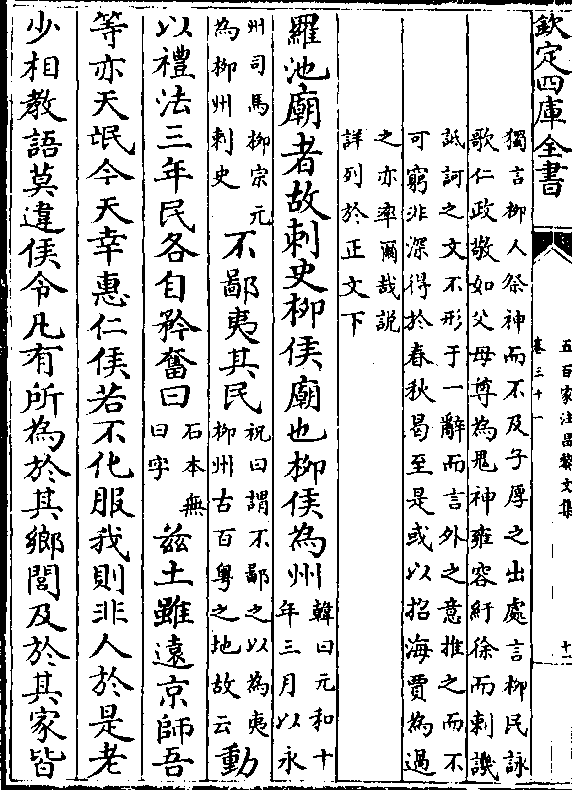 欽定四庫全書
五百家注昌黎文集
卷三十一
十一
獨言柳人祭神而不及子厚之出處言柳民詠
歌仁政敬如父母尊為鬼神雍容紆徐而刺譏
詆訶之文不形于一辭而言外之意推之而不
可窮非深得於春秋曷至是或以招海賈為過
之亦率爾哉説
詳列於正文下
羅池廟者故刺史柳侯廟也柳侯為州韓曰元和十
年三月以永
州司馬柳宗元
為柳州刺史不鄙夷其民祝曰謂不鄙之以為夷
柳州古百粤之地故云動
以禮法三年民各自矜奮曰石本無
曰字兹土雖遠京師吾
等亦天氓今天幸惠仁侯若不化服我則非人於是老
少相教語莫違侯令凡有所為於其鄉閭及於其家皆